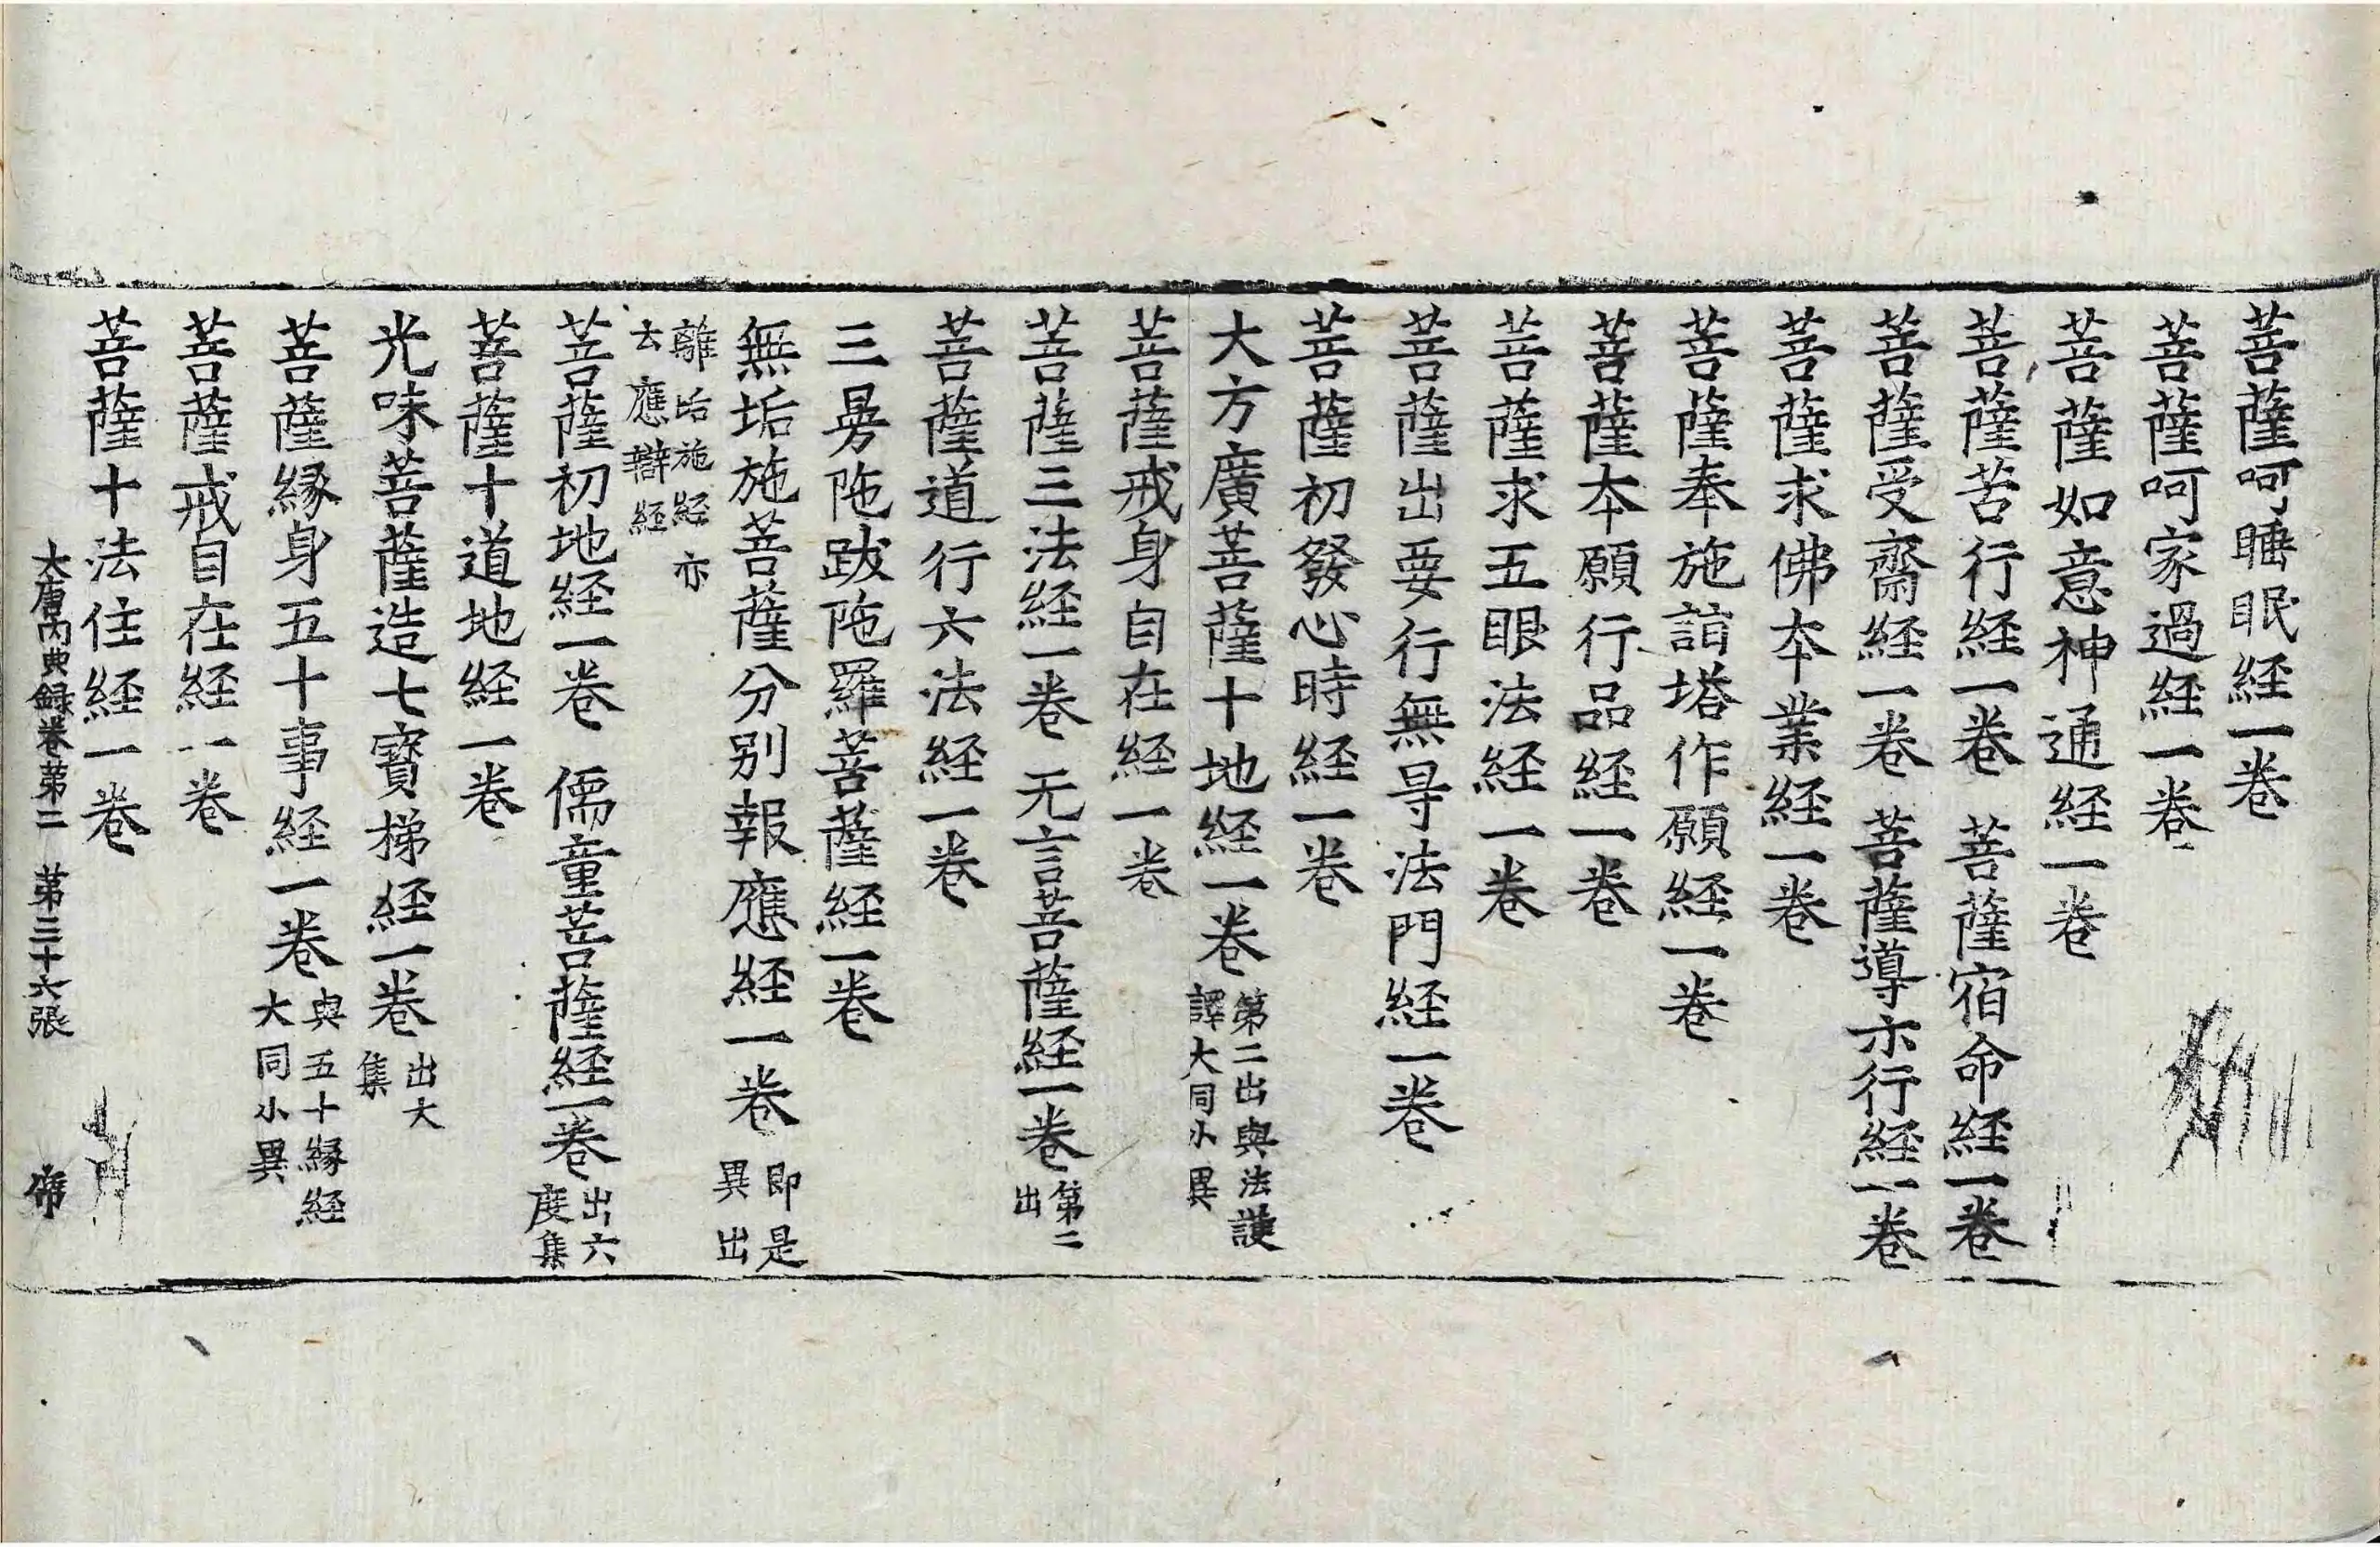 菩薩呵睡眠経一卷
菩薩呵家過経一卷
菩薩如意神通経一卷
菩薩苦行経一卷 菩薩宿命経一卷
菩薩受齋経一卷 菩薩導示行経一卷
菩薩求佛本業経一卷
菩薩奉施詣塔作願経一卷
菩薩本願行品経一卷
菩薩求五眼法経一卷
菩薩出要行無㝵法門経一卷
菩薩初發心時経一卷
大方廣菩薩十地経一卷 第二出與法護
譯大同小異
菩薩戒身自在経一卷
菩薩三法経一卷 无言菩薩経一卷 第二
出
菩薩道行六法経一卷
三曼陁跋陁羅菩薩経一卷
無垢施菩薩分别報應経一卷 即是
異出
離垢施経亦
云應辯経
菩薩初地経一卷 儒童菩薩経一卷 出六
度集
菩薩十道地経一卷
光味菩薩造七寶梯経一卷 出大
集
菩薩緣身五十事経一卷 與五十緣経
大同小異
菩薩戒自在経一卷
菩薩十法住経一卷
大唐内典録卷第二 第三十六張 帝